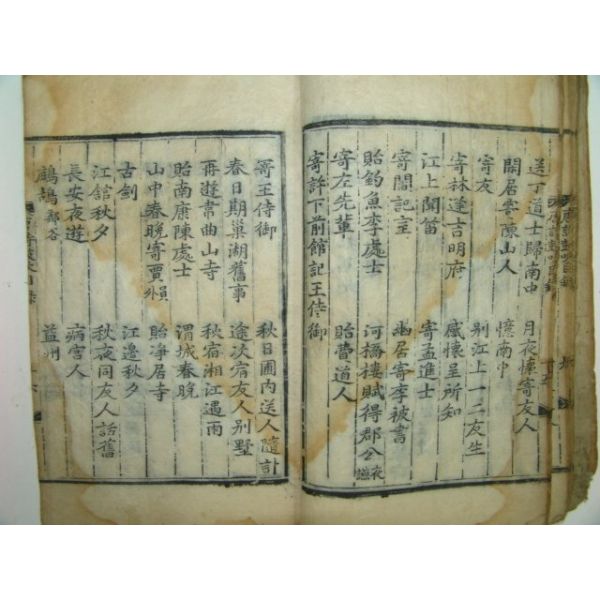 唐詩鼓吹目錄
送丁道士歸南中 月夜懷寄友人
閑居寄陳山人 憶南中
寄友 別江上一二友生
寄林逢吉明府 感懷呈所知
江上聞笛 寄孟進士
寄閻記室 幽居寄李被書
貽釣魚李處士 河橋樓賦得郡公夜讌
寄左先輩 貽曹道人
寄許下前館記王侍御
寄王侍御 秋日圃内送人隨計
春日期巢湖舊事 途次宿友人別墅
再遊韋曲山寺 秋宿湘江遇雨
貽南康陳處士 渭城春晚
山中春晚寄賈損 貽淨居寺
古劍 江邊秋夕
江舘秋夕 秋夜同友人話舊
長安夜遊 病宮人
鷓鴣 鄭谷 益州